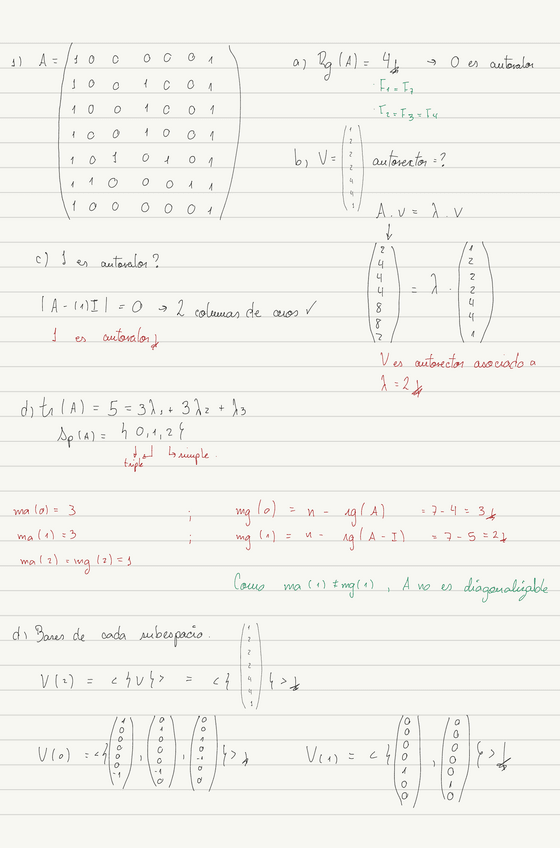 1) A = ( 1 0 0 0 0 0 1
1 0 0 1 0 0 1
1 0 0 1 0 0 1
1 0 0 1 0 0 1
1 0 1 0 1 0 1
1 1 0 0 0 1 1
1 0 0 0 0 0 1 )
a) Rg (A) = 4 → 0 es autovalor
F1 = F7
F2 = F3 = F4
b) V = ( 1 2 2 2 4 4 1 ) autovector = ?
A . v = λ . v
↓
( 2 4 4 4 8 8 2 ) = λ . ( 1 2 2 2 4 4 1 )
V es autovector asociado a
λ = 2
c) 1 es autovalor?
|A - (1) I| = 0 → 2 columnas de ceros ✓
1 es autovalor
d) tr (A) = 5 = 3λ1 + 3λ2 + λ3
Sp (A) = { 0, 1, 2 }
triple simple.
ma (0) = 3 ; mg (0) = n - rg (A) = 7 - 4 = 3
ma (1) = 3 ; mg (1) = n - rg (A - I) = 7 - 5 = 2
ma (2) = mg (2) = 1
Como ma (1) ≠ mg (1) , A no es diagonalizable
d) Bases de cada subespacio.
V (2) = < { V } > = < { ( 1 2 2 2 4 4 1 ) } >
V (0) = < { ( 1 0 0 0 0 0 -1 ) , ( 0 1 0 0 0 -1 0 ) , ( 0 0 1 0 -1 0 0 ) } >
V (1) = < { ( 0 0 0 0 1 0 0 ) , ( 0 0 0 0 0 1 0 ) } >